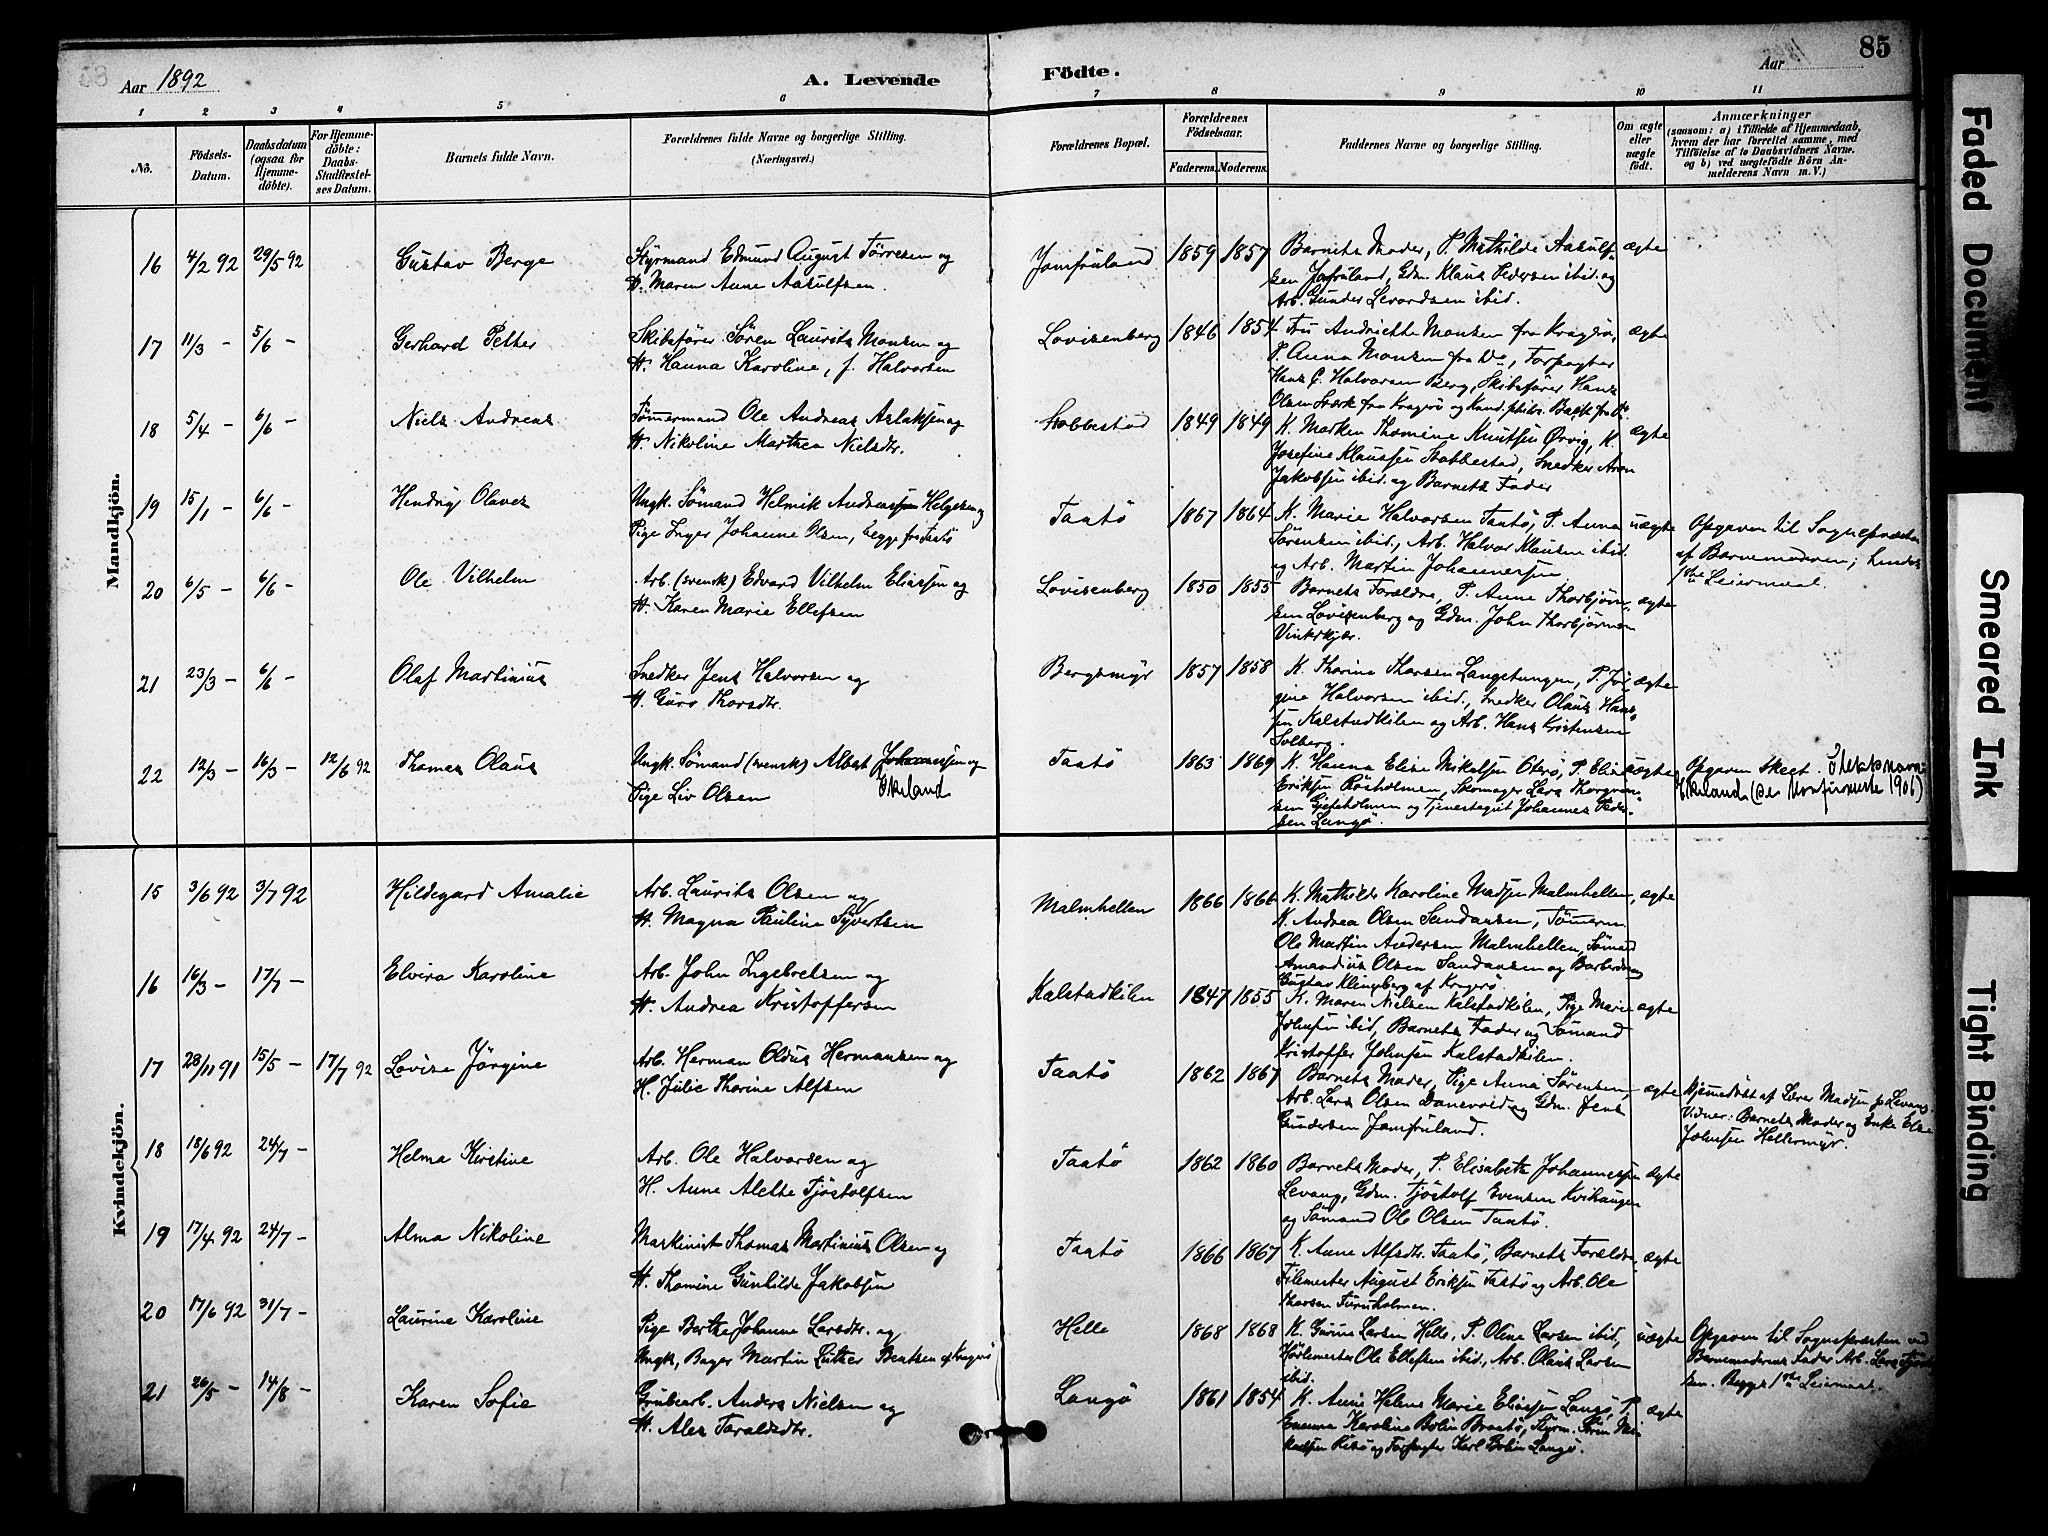 85
Aar 1892
A. Levende
Födte.
Aar
1 2 3 4 5 6 7 8 9 10 11
No.
Födsels-Datum.
Daabsdatum (ogsaa for Hjemmedöbte).
For Hjemmedöbte: Daabs-Stadfæstelses Datum.
Barnets fulde Navn.
Forældrenes fulde Navne og borgerlige Stilling.
(Næringsvei.)
Forældrenes Bopæl.
Forældrenes Födselsaar.
Faderens. Moderens.
Faddernes Navne og borgerlige Stilling.
Om ægte eller uægte födt.
Anmærkninger
(saasom: a) i Tilfælde af Hjemmedaab,
hvem der har forrettet samme, med
Tilföielse af to Daabsvidners Navne,
og b) ved uægtefödte Börn Anmelderens Navn m.V.)
Mandkjön.
16 4/2 92 29/5 92 Gustav Berge
Styrmand Edmund August Törresen og
H. Maren Anne Aasulfsen.
Jomfruland 1859 1857
Barnets Moder, P. Mathilde Aasulf-
sen Jomfruland, Gdm. Klaus Pedersen ibid. og
Arb. Gunder Levordsen ibid.
ægte
17 11/3 – 5/6 – Gerhard Petter
Skibsfører Sören Laurits Monsen og
H. Hanna Karoline, f. Halvorsen
Lovisenberg 1846 1854
Fru Andrictte Monsen fra Kragerø,
P. Anna Monsen fra Do, Forpagter
Hans C. Halvorsen Berg, Skibsfører Hans
Olsen Stærk fra Kragerö og Kand. philos. Bache fra Do
ægte
18 5/4 – 6/6 – Niels Andreas
Tömmermand Ole Andreas Aslaksen og
H. Nikoline Marthea Nielsdtr.
Stobbestad 1849 1849
K. Marken Thomine Knutsen Ørvig, K.
Josefine Klaussen Stobbestad, Snedker Aron
Jakobsen ibid. og Barnets Fader
ægte
19 15/1 – 6/6 – Hendry Olaves
Ungk. Sömand Helmik Andreassen Helgesen og
Pige Inger Johanne Olsen, begge fra Taatö
Taatö 1867 1864
K. Marie Halvorsen Taatö, P. Anna
Sörensen ibid., Arb. Halvor Klausen ibid.
og Arb. Martin Johannessen
uægte
Opgaven til Sognepræsten
af Barnemoderen; hendes
1ste Leiermaal.
20 6/5 – 6/6 – Ole Vilhelm
Arb. (svensk) Edvard Vilhelm Eliassen og
H. Karen Marie Ellefsen
Lovisenberg 1850 1855
Barnets Forældre, P. Anne Thorbjörn-
sen Lovisenberg og Gdm. John Thorbjörnsen
Vinkskjær.
ægte
21 23/3 – 6/6 – Olaf Martinius
Snedker Jens Halvorsen og
H. Guro Thorsdtr.
Bergsmyr 1857 1858
K. Thorine Thorsen Langetangen, P. Jör-
gine Halvorsen ibid., Snedker Olaus Hans-
sen Kalstadkilen og Arb. Hans Kristensen
Solberg.
ægte
22 12/3 – 16/3 – 12/6 92 Thomas Olaus
Ungk. Sömand (svensk) Albert Johannessen og
Ekeland
Pige Liv Olsen
Taatö 1863 1869
K. Hanna Elise Mikalsen Oterö, P. Elise
Eriksen Röisholmen, Skomager Lars Thorgrim-
sen Gjeteholmen og Tjenestegut Johannes Peder-
sen Langö.
uægte
Opgaven skeet. Slektsnavn:
Ekeland (se Konfirmerte 1906)
Kvindekjön.
15 3/6 92 3/7 92 Hildegard Amalie
Arb. Laurits Olsen og
H. Magna Pauline Syvertsen
Malmhellen 1866 1866
K. Mathilde Karoline Madsen Malmhellen,
K. Andrea Olsen Sandaasen, Tömerm.
Ole Martin Andersen Malmhellen, Sömand
Amandius Olsen Sandaasen og Barberdreng
Gustav Klingberg af Kragerö.
ægte
16 16/3 – 17/7 – Elvira Karoline
Arb. John Ingebretsen og
H. Andrea Kristoffersen
Kalstadkilen 1847 1855
K. Maren Nielsen Kalstadkilen, Pige Marie
Johnsen ibid, Barnets Fader og Sömand
Kristoffer Johnsen Kalstadkilen.
ægte
17 28/11 91 15/5 – 17/7 92 Lovise Jörgine
Arb. Herman Olaus Hermansen og
H. Julie Thorine Alfsen
Taatö 1862 1867
Barnets Moder, Pige Anna Sörensen,
Arb. Lars Olsen Danevold og Gdm. Jens
Gundersen Jomfruland.
ægte
Hjemmedöbt af Lærer Madsen p. Levang.
Vidner: Barnets Moder og Enke Else
Johnsen Hellermyr.
18 18/6 92 24/7 – Helma Kirstine
Arb. Ole Halvorsen og
H. Anne Alette Tjöstolfsen
Taatö 1862 1860
Barnets Moder, P. Elisabeth Johannessen
Levang, Gdm. Tjöstolf Evensen Kvihaugen
og Sömand Ole Olsen Taatö.
ægte
19 17/4 92 24/7 – Alma Nikoline
Maskinist Thomas Martinius Olsen og
H. Thomine Gunhilde Jakobsen
Taatö 1866 1867
K. Anne Alfsdtr. Taatö, Barnets Forældre,
Filemester August Eriksen Taatö og Arb. Ole
Thorsen Furuholmen.
ægte
20 17/6 92 31/7 – Laurine Karoline
Pige Berthe Johanne Larsdtr. og
Ungk. Bager Martin Luther Bentsen af Kragerö
Helle 1868 1868
K. Gurine Larsen Helle, P. Oline Larsen ibid,
Hövlemester Ole Ellefsen ibid, Arb. Olaus Larsen
ibid.
uægte
Opgaven til Sognepræsten ved
Barnemoderens Fader Arb. Lars
sen. Begges 1ste Leiermaal.
21 26/5 – 14/8 – Karen Sofie
Grubearb. Anders Nielsen og
H. Ales Taraldsdtr.
Langö 1861 1854
K. Anne Helene Marie Eliassen Langö, P.
Emma Karoline Bolin Braatö, Styrm. Sören Mi-
kalsen Risö og Forpagter Karl Bolin Langö.
ægte
Faded Document
Smeared Ink
Tight Binding